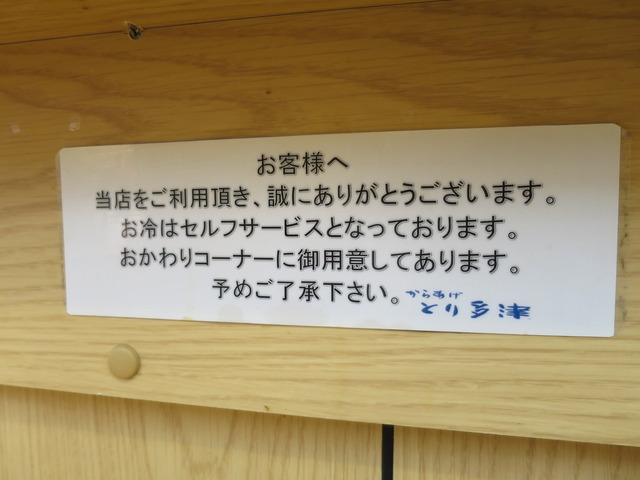 お客様へ
当店をご利用頂き、誠にありがとうございます。
お冷はセルフサービスとなっております。
おかわりコーナーに御用意してあります。
予めご了承下さい。
からあげ
とり多津